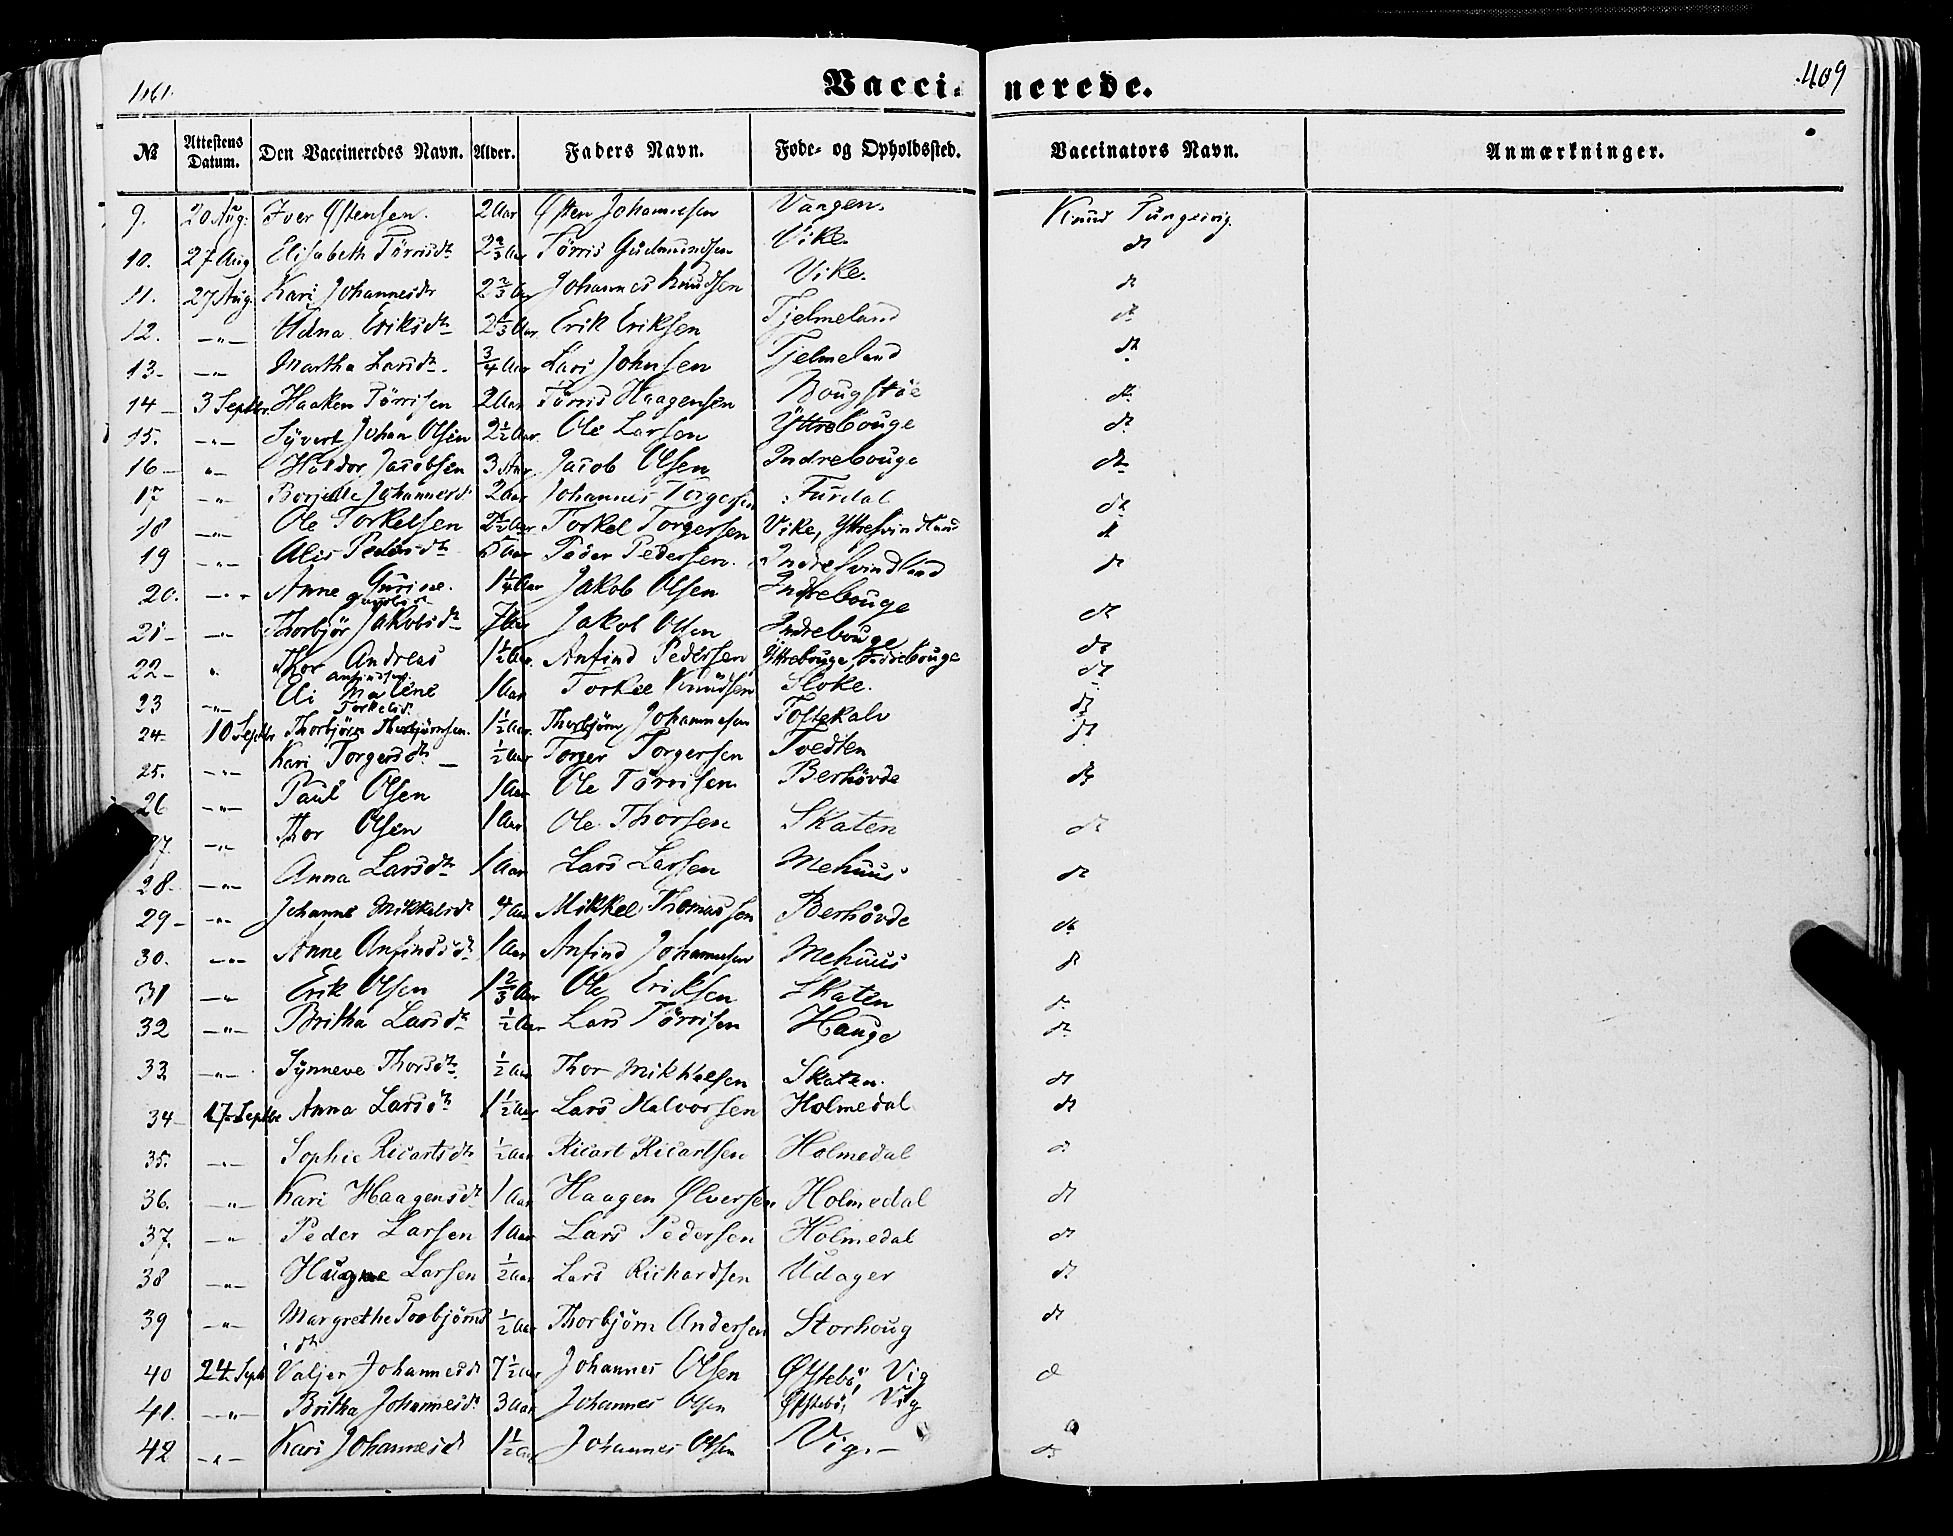 Vaccinerede.
409
№ Attestens Datum. Den Vaccineredes Navn. Alder. Faders Navn. Føde- og Opholdssted. Vaccinators Navn. Anmærkninger.
9. 20 Aug. Iver Østensen. 2 Aar Østen Johannesen Vangen. Knud
10. 27 Aug Elisabeth Törrisdr 2 2/3 Aar Törris Gudmundsen Vike. do
11. 27 Aug. Kari Johannesdr 2 2/3 Aar Johannes Knudsen Vike. do
12. -"- Adna Eriksdtr Erik Eriksen Tjelmeland do
13- -"- Martha Larsdtr. 3/4 Aar Lars Johnsen Tjelmeland do
14- 3 Septbr. Haaken Törrisen 2 Aar Törris Haagensen Bougstöe do
15. -"- Syvert Johan Olsen 2 1/2 Aar. Ole Larsen Yttrebouge do
16- " Haldor Jacobsen 3 Aar. Jacob Olsen Indrebouge do
17 -"- Johannesd. 2 Aar Johannes Torgersen Furdal do
18 -"- Ole Torkelsen 2 1/2 Aar Torkel Torgersen Vike, Yttresvindland do
19 -"- Pedersdtr Aar Peder Pedersen. Indresvindland do
20. -"- Anne Gurine Jacobsd 1 1/4 Aar Jakob Olsen Indrebouge
21- -"- Thorbjör Jakobsdtr 7 Aar Jakob Olsen Indrebouge do
22- " Thor Andreas Anfindsen 1 1/2 Aar. Anfind Pedersen Yttrebouge, Indrebouge do
23 -"- Eli Malene Torkelsd. 1 Aar Torkel Knudsen Sloke. do
24- 10 Septbr Thorbjörn Thorbjörnsen. 1 1/2 Aar. Thorbjörn Johannesen do
25. -"- Kari Torgersdtr - 1/2 Aar Torger Torgersen Tvedten do
26 -"- Paul Olsen 1 Aar Ole Törrisen Berhövde do
27. -"- Thor Olsen 1 Aar Ole Thorsen Skaten do
28- -"- Anna Larsdtr 1 Aar Lars Larsen Mehuus do
29- -"- Johanne Mikkelsdr 4 Aar Mikkel Thomassen Berhövde do
30. -"- Anne Anfindsdtr 1 Aar Anfind Johannesen Mehuus do
31 -"- Erik Olsen 1 2/3 Aar Ole Eriksen Skaten do
32 -"- Britha Larsdtr 1/2 Aar Lars Törrisen Hauge do
33 -"- Synneve Thorsdtr. 1/2 Aar Thor Mikkelsen Skaten. do
34- 17 Septbr Anna Larsdtr 1 1/2 Aar Lars Halvorsen Holmedal do
35. -"- Sophie Ricartsdtr 1/2 Aar Ricart Ricartsen Holmedal do
36. -"- Kari Haagensdtr 1 Aar Haagen Ølversen Holmedal do
37. -" Peder Larsen 1 Aar Lars Pedersen Holmedal do
38 -"- Larsen 1/2 Aar Lars Richardsen Udager do
39 -"- Margrethe Torbjörns 1/2 Aar Thorbjörn Andersen Storhoug do
dtr
40 24 Septb Johannesd 7 1/2 Aar Johannes Olsen Vig d
41. -"- Britha Johannesd. 3 Aar Johannes Olsen Vig
42 -"- Kari Johannesd 1 1/2 Aar Johannes Olsen Vig.- do